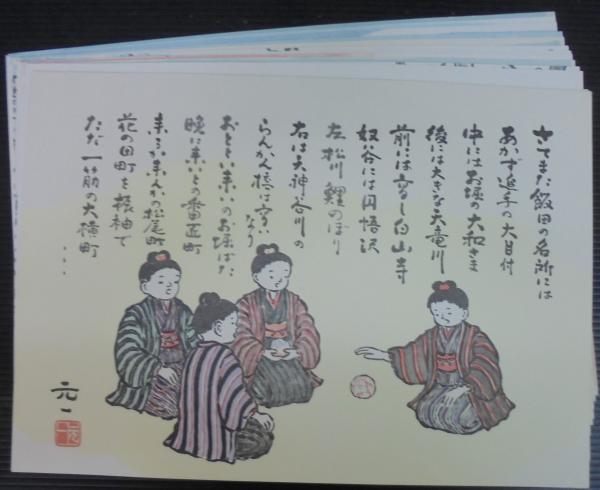 さてまた飯田の名所には
あかず追手の大目付
中にはお堀の大和さま
後には大きな天竜川
前には宮し白山寺
奴谷には円悟沢
左松川鯉のぼり
右は天神谷川の
らんかん橋は宮いなり
おとといまいのお堀ばた
晩に来いとの番匠町
来るか来んかの松尾町
花の田町を振袖で
ただ一筋の大横町
…
元一